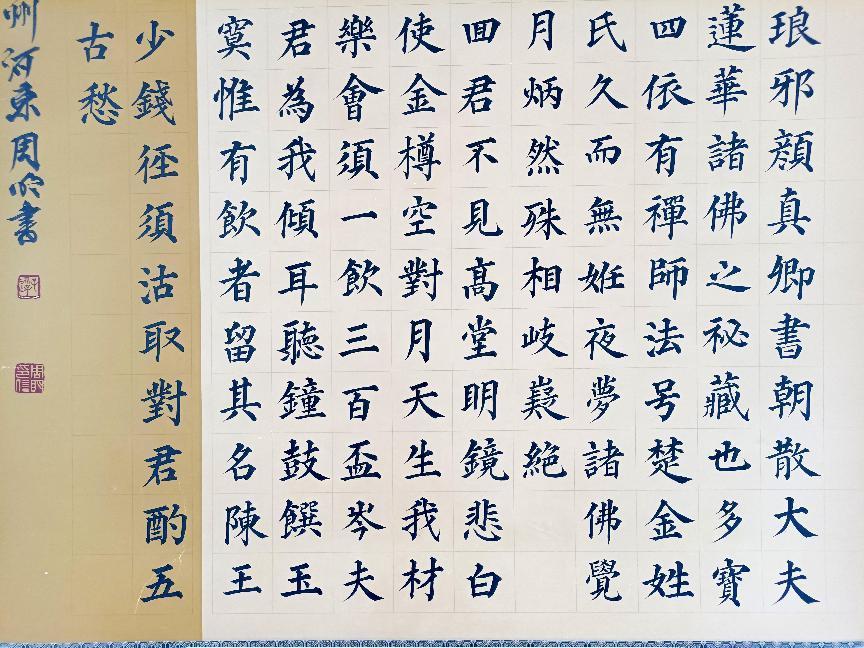 琅邪顔真卿書朝散大夫
蓮華諸佛之秘藏也多寶
四依有禪師法号楚金姓
氏久而無姙夜夢諸佛覺
月炳然殊相岐嶷絶
回君不見高堂明鏡悲白
使金樽空對月天生我材
樂會須一飲三百盃岑夫
君為我傾耳聽鐘鼓饌玉
寞惟有飲者留其名陳王
少錢徑須沽取對君酌五
古愁
州河東周
書